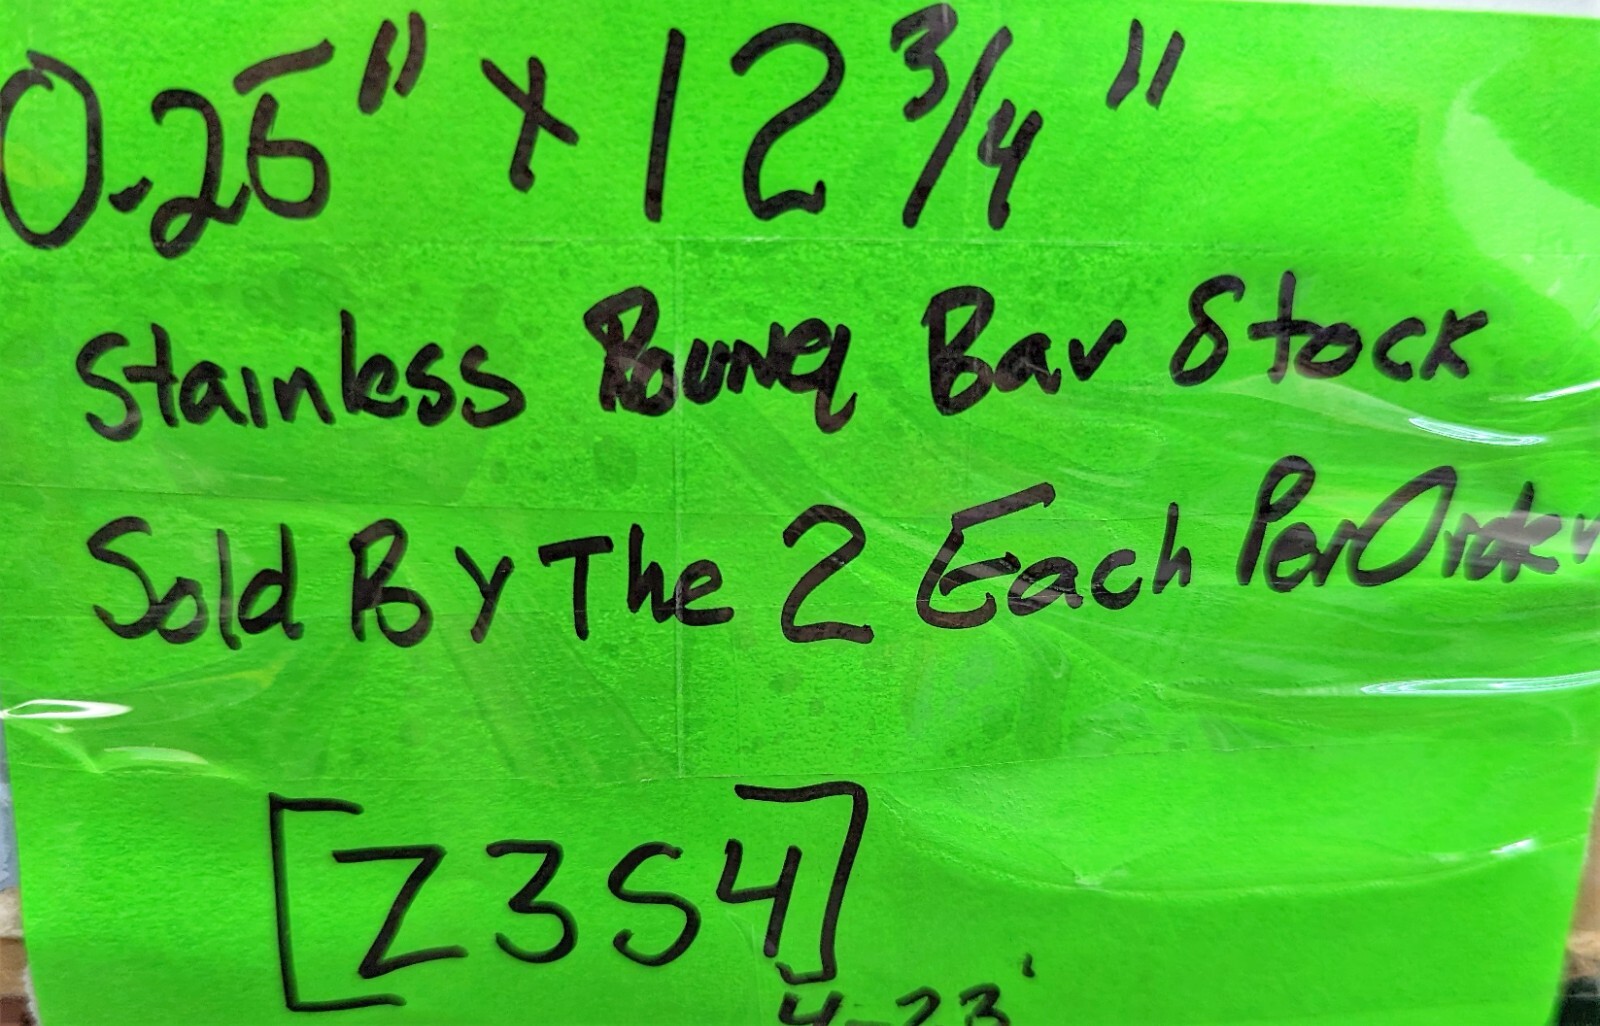 0.25" x 12 3/4"
Stainless Round Bar Stock
Sold By The 2 Each Per Order
[Z3S4]
4-23